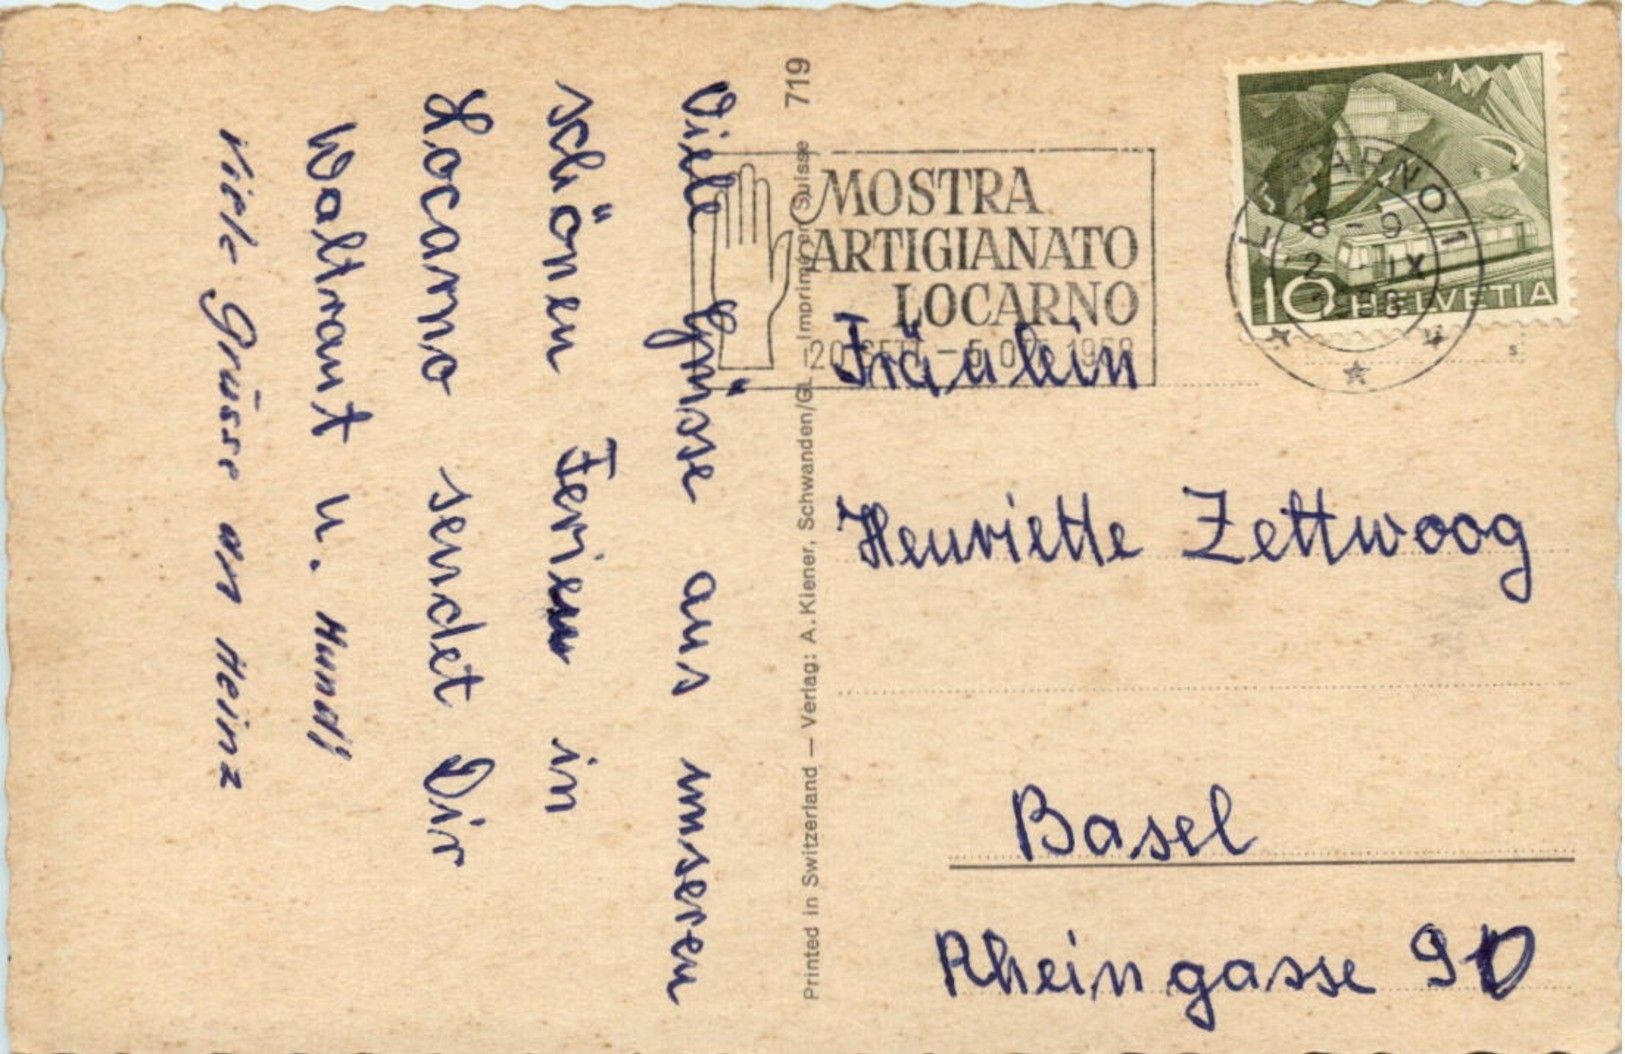 Viele Grüsse aus unseren
schönen Ferien in
Locarno sendet Dir
Waltraut u. Mundi
Viele Grüsse an Heinz
719
Printed in Switzerland — Verlag: A. Kiener, Schwanden/Gl. — Imprimé en Suisse
MOSTRA
ARTIGIANATO
LOCARNO
20 SETT. – 5 OTT. 1958
LOCARNO 1
8–9
IX
10 HELVETIA
Fräulein
Henriette Zettwoog
Basel
Rheingasse 90